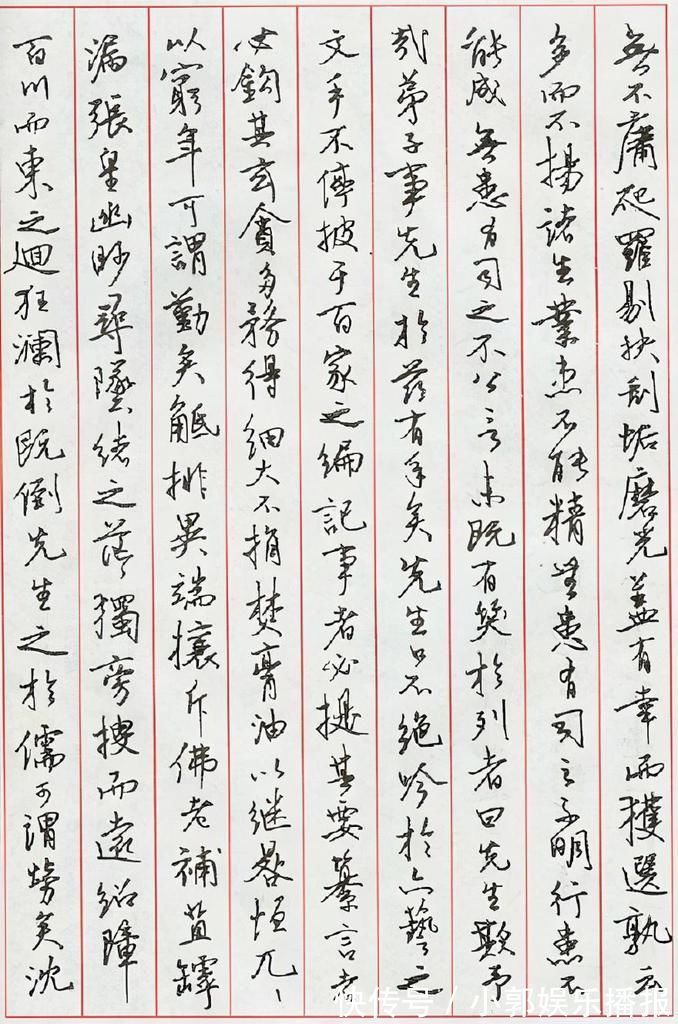 無不庸爬羅剔抉刮垢磨光蓋有幸而獲選孰云
多而不揚諸生業患不能精無患有司之不明行患不
能成無患有司之不公言未既有笑於列者曰先生欺予
哉弟子事先生於茲有年矣先生口不絶吟於六藝之
文手不停披于百家之編記事者必提其要纂言者
必鈎其玄貪多務得細大不捐焚膏油以继晷恒兀丶
以窮年可謂勤矣觝排異端攘斥佛老補苴罅
漏張皇幽眇尋墜緒之茫獨旁搜而遠紹障
百川而東之迴狂瀾於既倒先生之於儒可謂勞矣沈
快传号/小郭娱乐播报